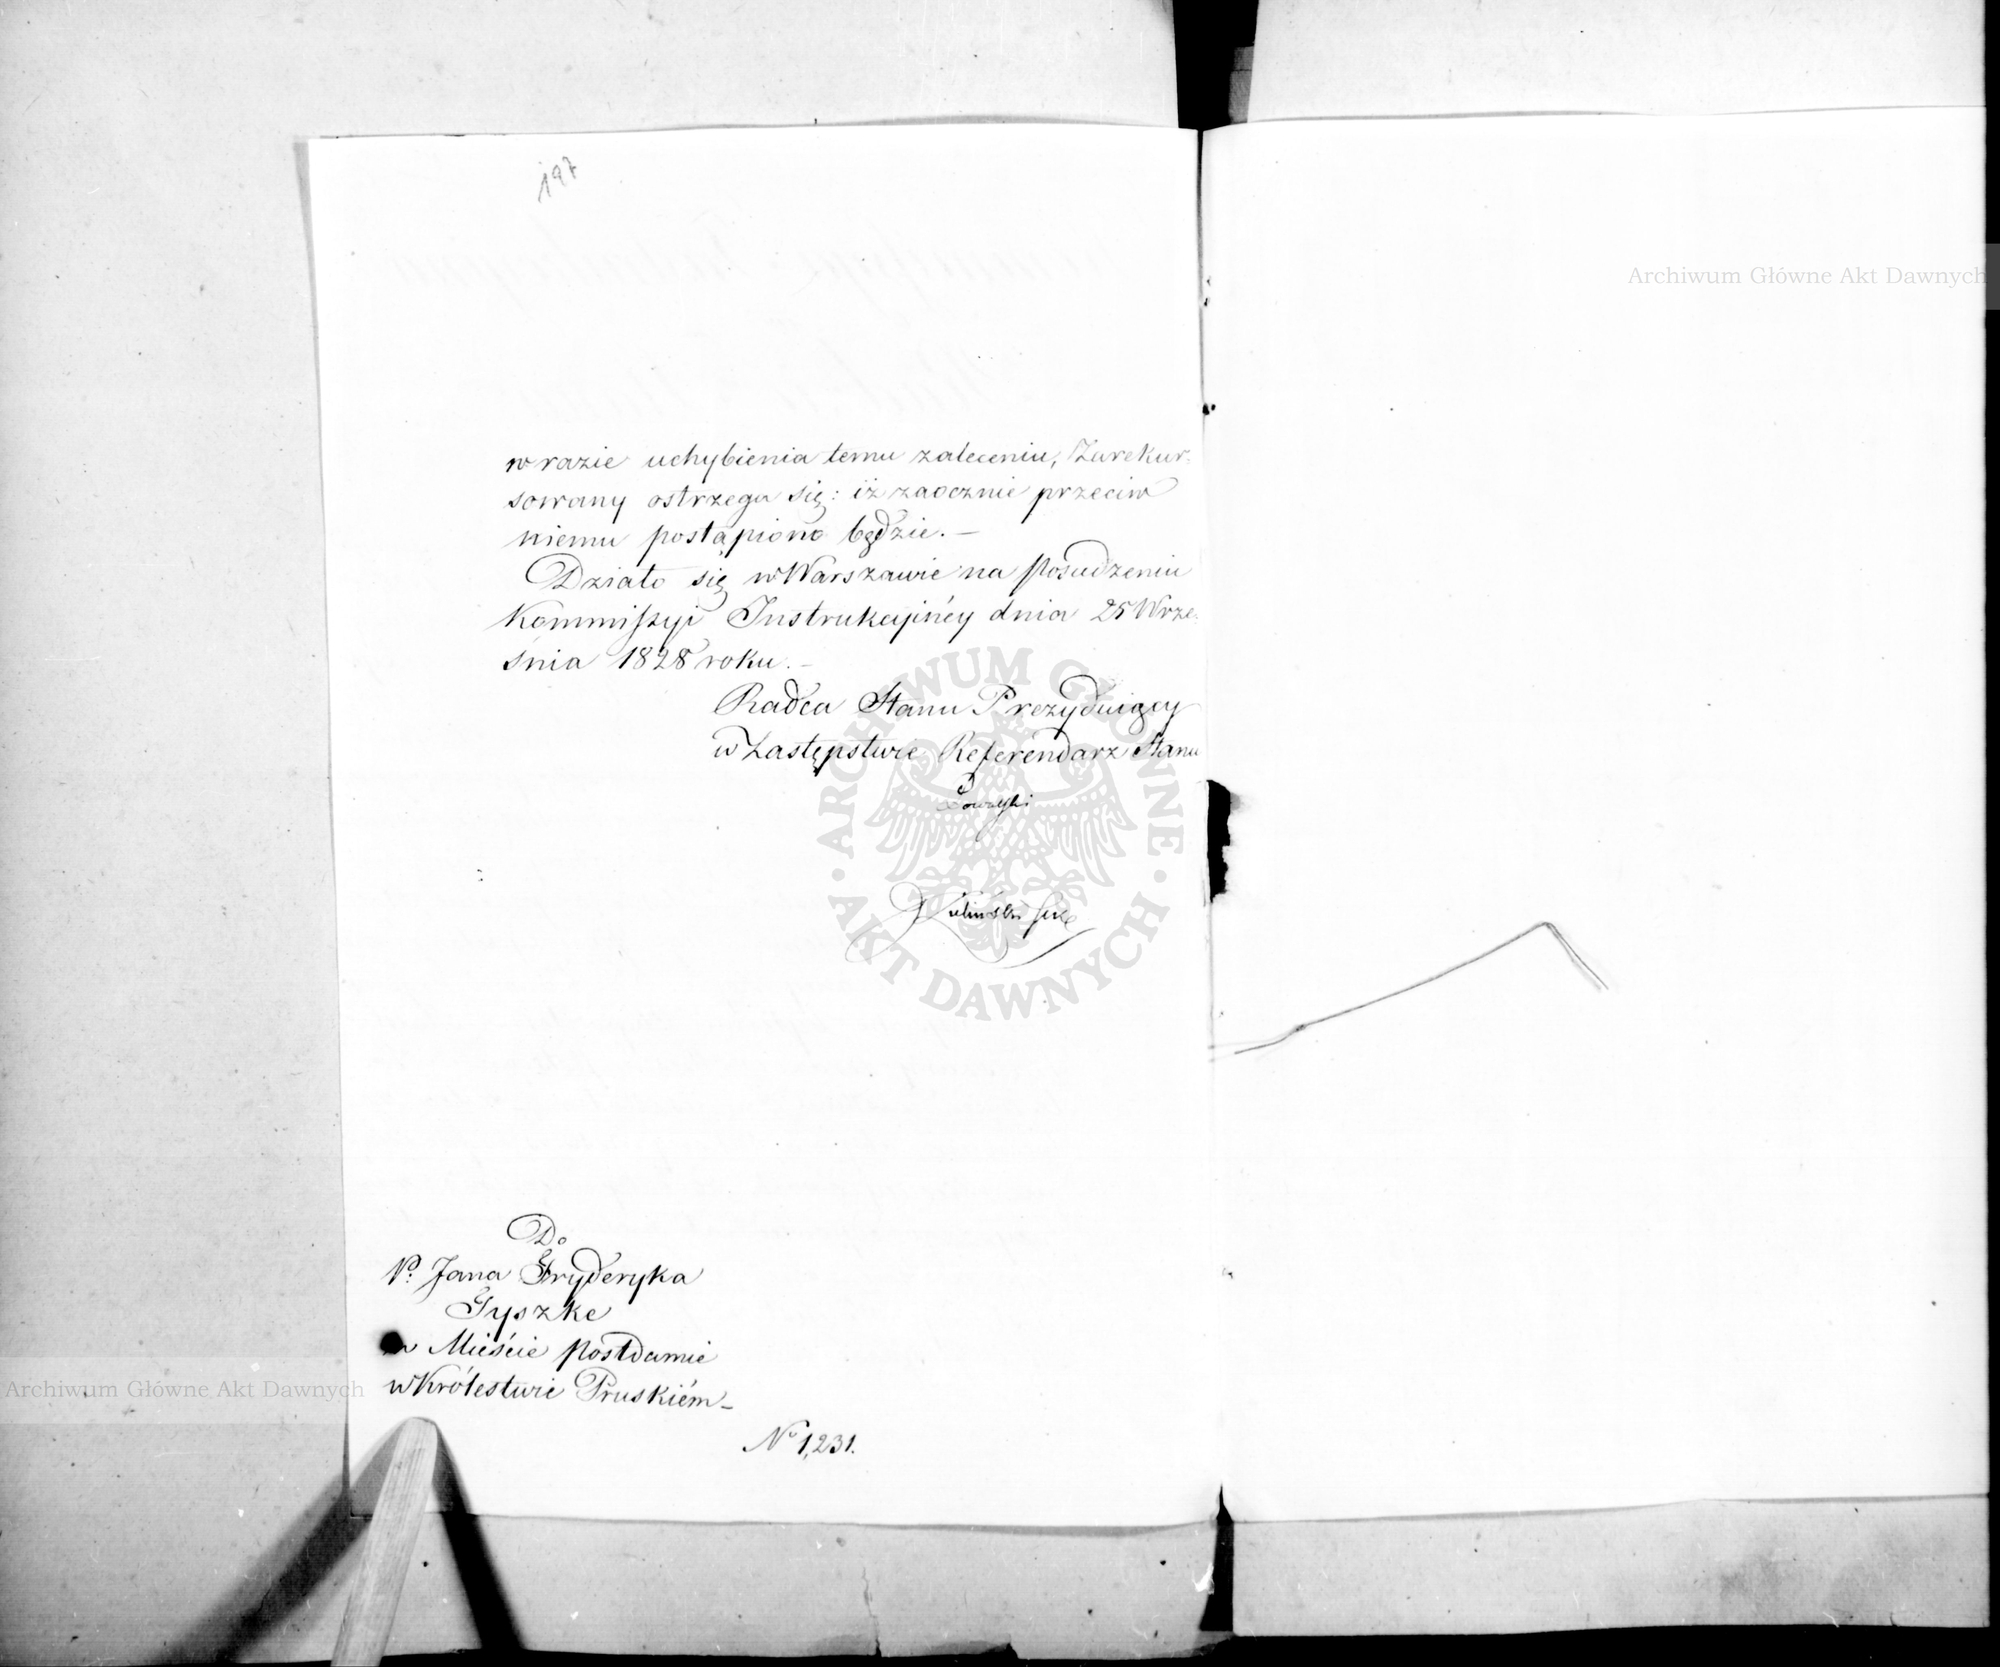 197
w razie uchybienia temu zaleceniu, Zarekur-
sowany ostrzega się: iż zaocznie przeciw
niemu postąpiono będzie. —
Działo się w Warszawie na Posiedzeniu
Kommissyi Instrukcyinéy dnia 25 Wrze-
śnia 1828 roku. —
Radca Stanu Prezyduiący
w Zastępstwie Referendarz Stanu
Do
P. Jana Fryderyka
Tyszke
w Mieście Postdamie
w Królestwie Pruskiém —
No 1,231.
Archiwum Główne Akt Dawnych
Archiwum Główne Akt Dawnych
ARCHIWUM GŁÓWNE
AKT DAWNYCH